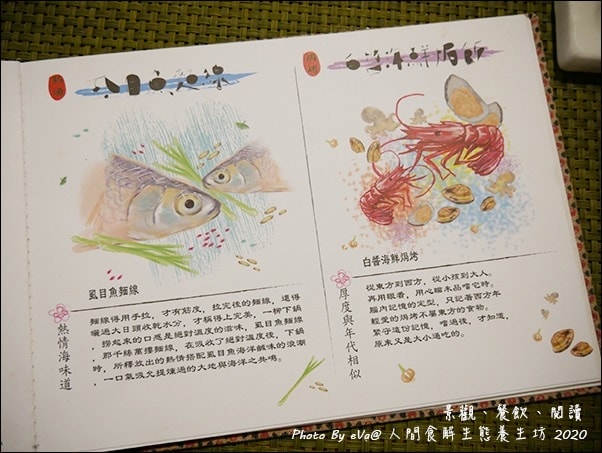 虱目魚麵線
熱情海味道
麵線得用手拉，才有筋度，拉完後的麵線，還得
曬過大日頭收乾水分，才稱得上完美，一柳下鍋
，撈起來的口感是絕對溫度的滋味，虱目魚麵線
，那千絲萬縷麵線，在吸收了絕對溫度後，下鍋
時，所釋放出的熱情搭配虱目魚海洋鹹味的浪潮
，一口氣吸允提煉過的大地與海洋之共鳴。
白醬海鮮焗烤
厚度與年代相似
從東方到西方，從小孩到大人。
再用眼看，用心瞄未品嚐它時。
腦內記憶的定型，只記著西方年
輕愛的焗烤不屬東方的食物。
堅守這份記憶，嚐過後，才知道，
原來又是大小通吃的。
景觀、餐飲、閱讀
Photo By eVa@ 人間食解生態養生坊 2020